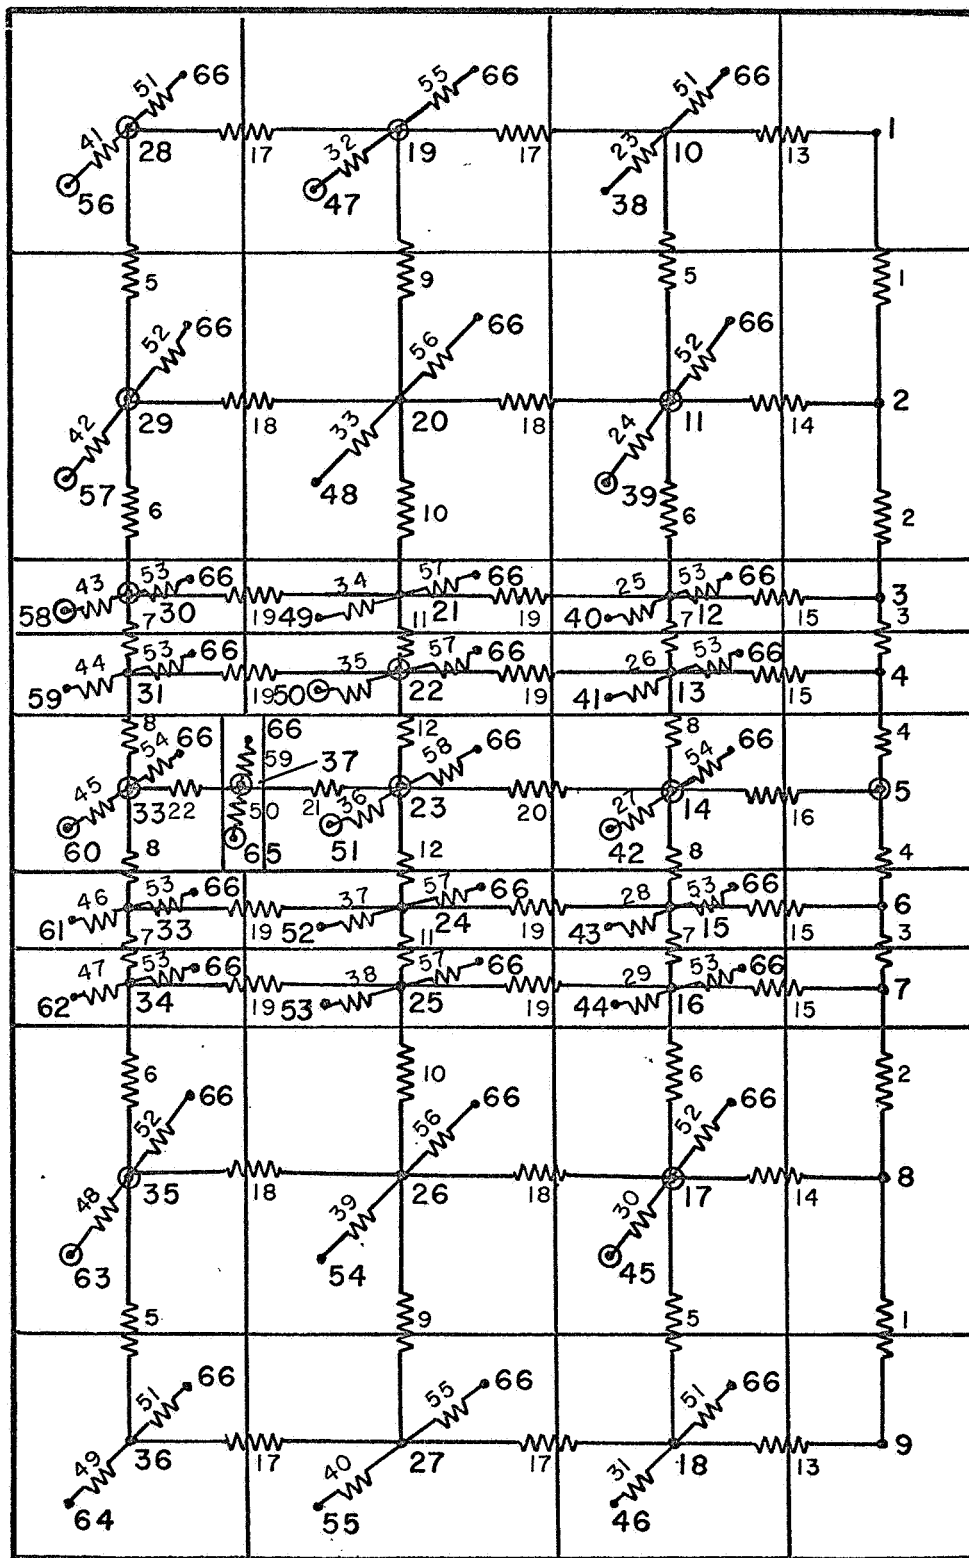 51 66 55 66 51 66
41 32 23
28 17 19 17 10 13 1
56 47 38
5 9 5 1
52 66 56 66 52 66
42 29 18 33 20 18 24 11 14 2
57 48 39
6 10 6 2
43 53 66 34 57 66 25 53 66
58 7 30 19 49 11 21 19 40 7 12 15 3 3
44 53 66 35 57 66 26 53 66
59 31 19 50 22 19 41 13 15 4
8 66 66 12 66 8 66 4
45 54 59 37 58 54
33 22 50 21 36 23 20 27 14 16 5
60 8 65 51 12 42 8 4
46 53 66 37 57 66 28 53 66
61 7 33 19 52 11 24 19 43 7 15 15 6 3
47 53 66 38 57 66 29 53 66
62 34 19 53 25 19 44 16 15 7
6 10 6 2
52 66 56 66 52 66
48 35 18 39 26 18 30 17 14 8
63 54 45
5 9 5 1
51 66 55 66 51 66
49 36 17 40 27 17 31 18 13 9
64 55 46